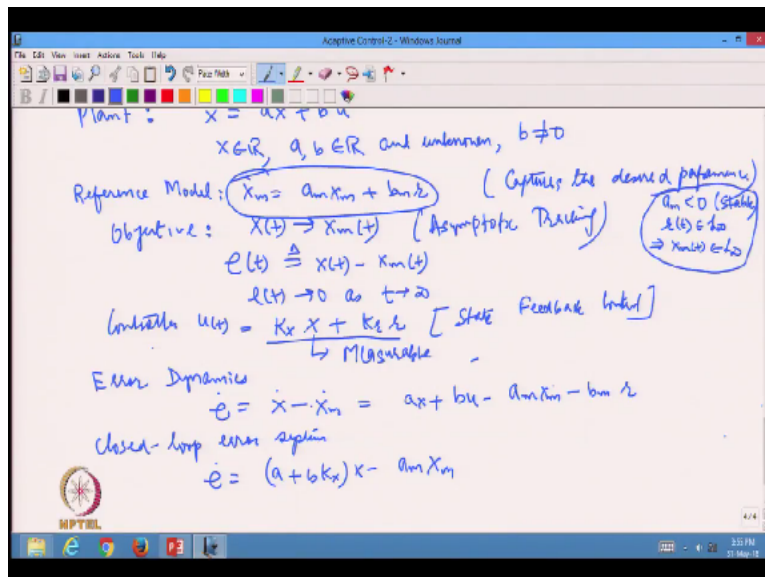 Adaptive Control-2 - Windows Journal
File Edit View Insert Actions Tools Help
Page Width
B I
Plant : ẋ = ax + bu
x∈ℝ, a,b ∈ℝ and unknown, b≠0
Reference Model: ẋm = am xm + bm r (Captures the desired performance)
am < 0 (stable)
r(t) ∈ L∞
⇒ xm(t) ∈ L∞
Objective : x(t) → xm(t) (Asymptotic Tracking)
e(t) ≜ x(t) - xm(t)
e(t) → 0 as t→∞
Controller u(t) = Kx x + Kr r [State Feedback Control]
↳ Measurable
Error Dynamics
ė = ẋ - ẋm = ax + bu - am xm - bm r
Closed-loop error system
ė = (a + b Kx) x - am xm
NPTEL
4/4
3:55 PM
31-May-18